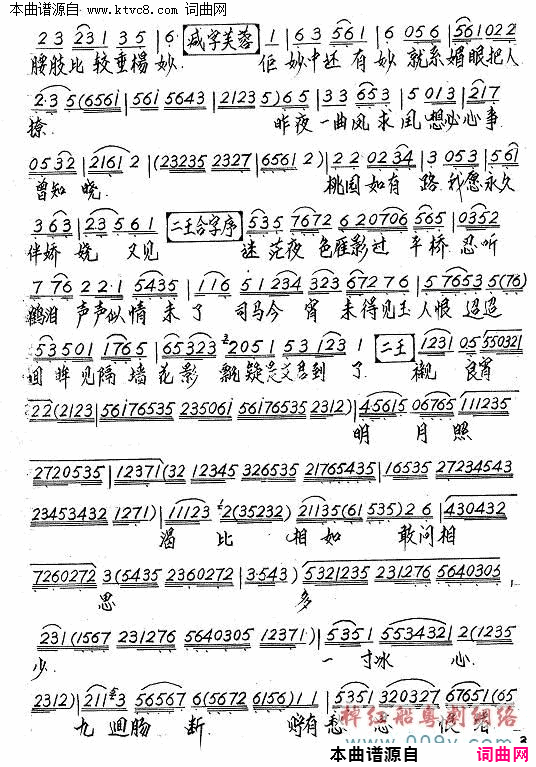 本曲谱源自
www.ktvc8.com 词曲网
2 3 231 3 5 | 6. 减字芙蓉 1 | 6 3 561 | 6 056 | 561022
腰肢比较垂楊妙. 佢妙中还有妙 就系媚眼把人
2·3 5(6561 | 561 5643 | 2123 5)6 5 | 3 3 653 | 5 013 | 217
撩. 昨夜一曲凤求凰想必心事
0532 | 21612 | (23235 2327 | 6561 2) | 2 2 0234 | 3 053 | 561
曾知晓. 桃園如有路.我愿永久
3 63 | 23 5 6 1 二王合字序 | 535 7672 6 20706 565 | 0352
伴娇娆 又见 迷花夜色雁影过平桥 忍听
7 76 2 2·1 5435 | 116 5 1234 323 67276 | 5 76535(76)
鹤泪声声似情未了 司马今宵未得见玉人恨迢迢
53501 1765 | 65323 2051 53 123 1 二王 1231 05 550321
回眸见隔墙花影飘疑是文君到了 襯良宵
22(2123 | 56176535 235061 56176535 2312) | 45615 06765 111235
明月照
2720535 | 12371(32 12345 326535 21765435 | 16535 27234543
23453432 1271) | 11123 2(35232) 21135(61 535)2 6 | 430432
渴比相如 敢问相
7260272 3(5435 2360272 | 3·543) 5321235 231276 5640305
思 多
231(1567 231276 5640305 12371) | 5351 553432 | 2(1235
少. 一寸冰心
2312) | 211 3 56567 6(5672 6156) 1 | 5351 320327 67651(65
九迴肠断
红船粤剧网络
本曲谱源自
词曲网